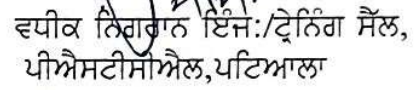 ਵਧੀਕ ਨਿਗਰਾਨ ਇੰਜ:/ਟ੍ਰੇਨਿੰਗ ਸੈੱਲ,
ਪੀਐਸਟੀਸੀਐਲ,ਪਟਿਆਲਾ